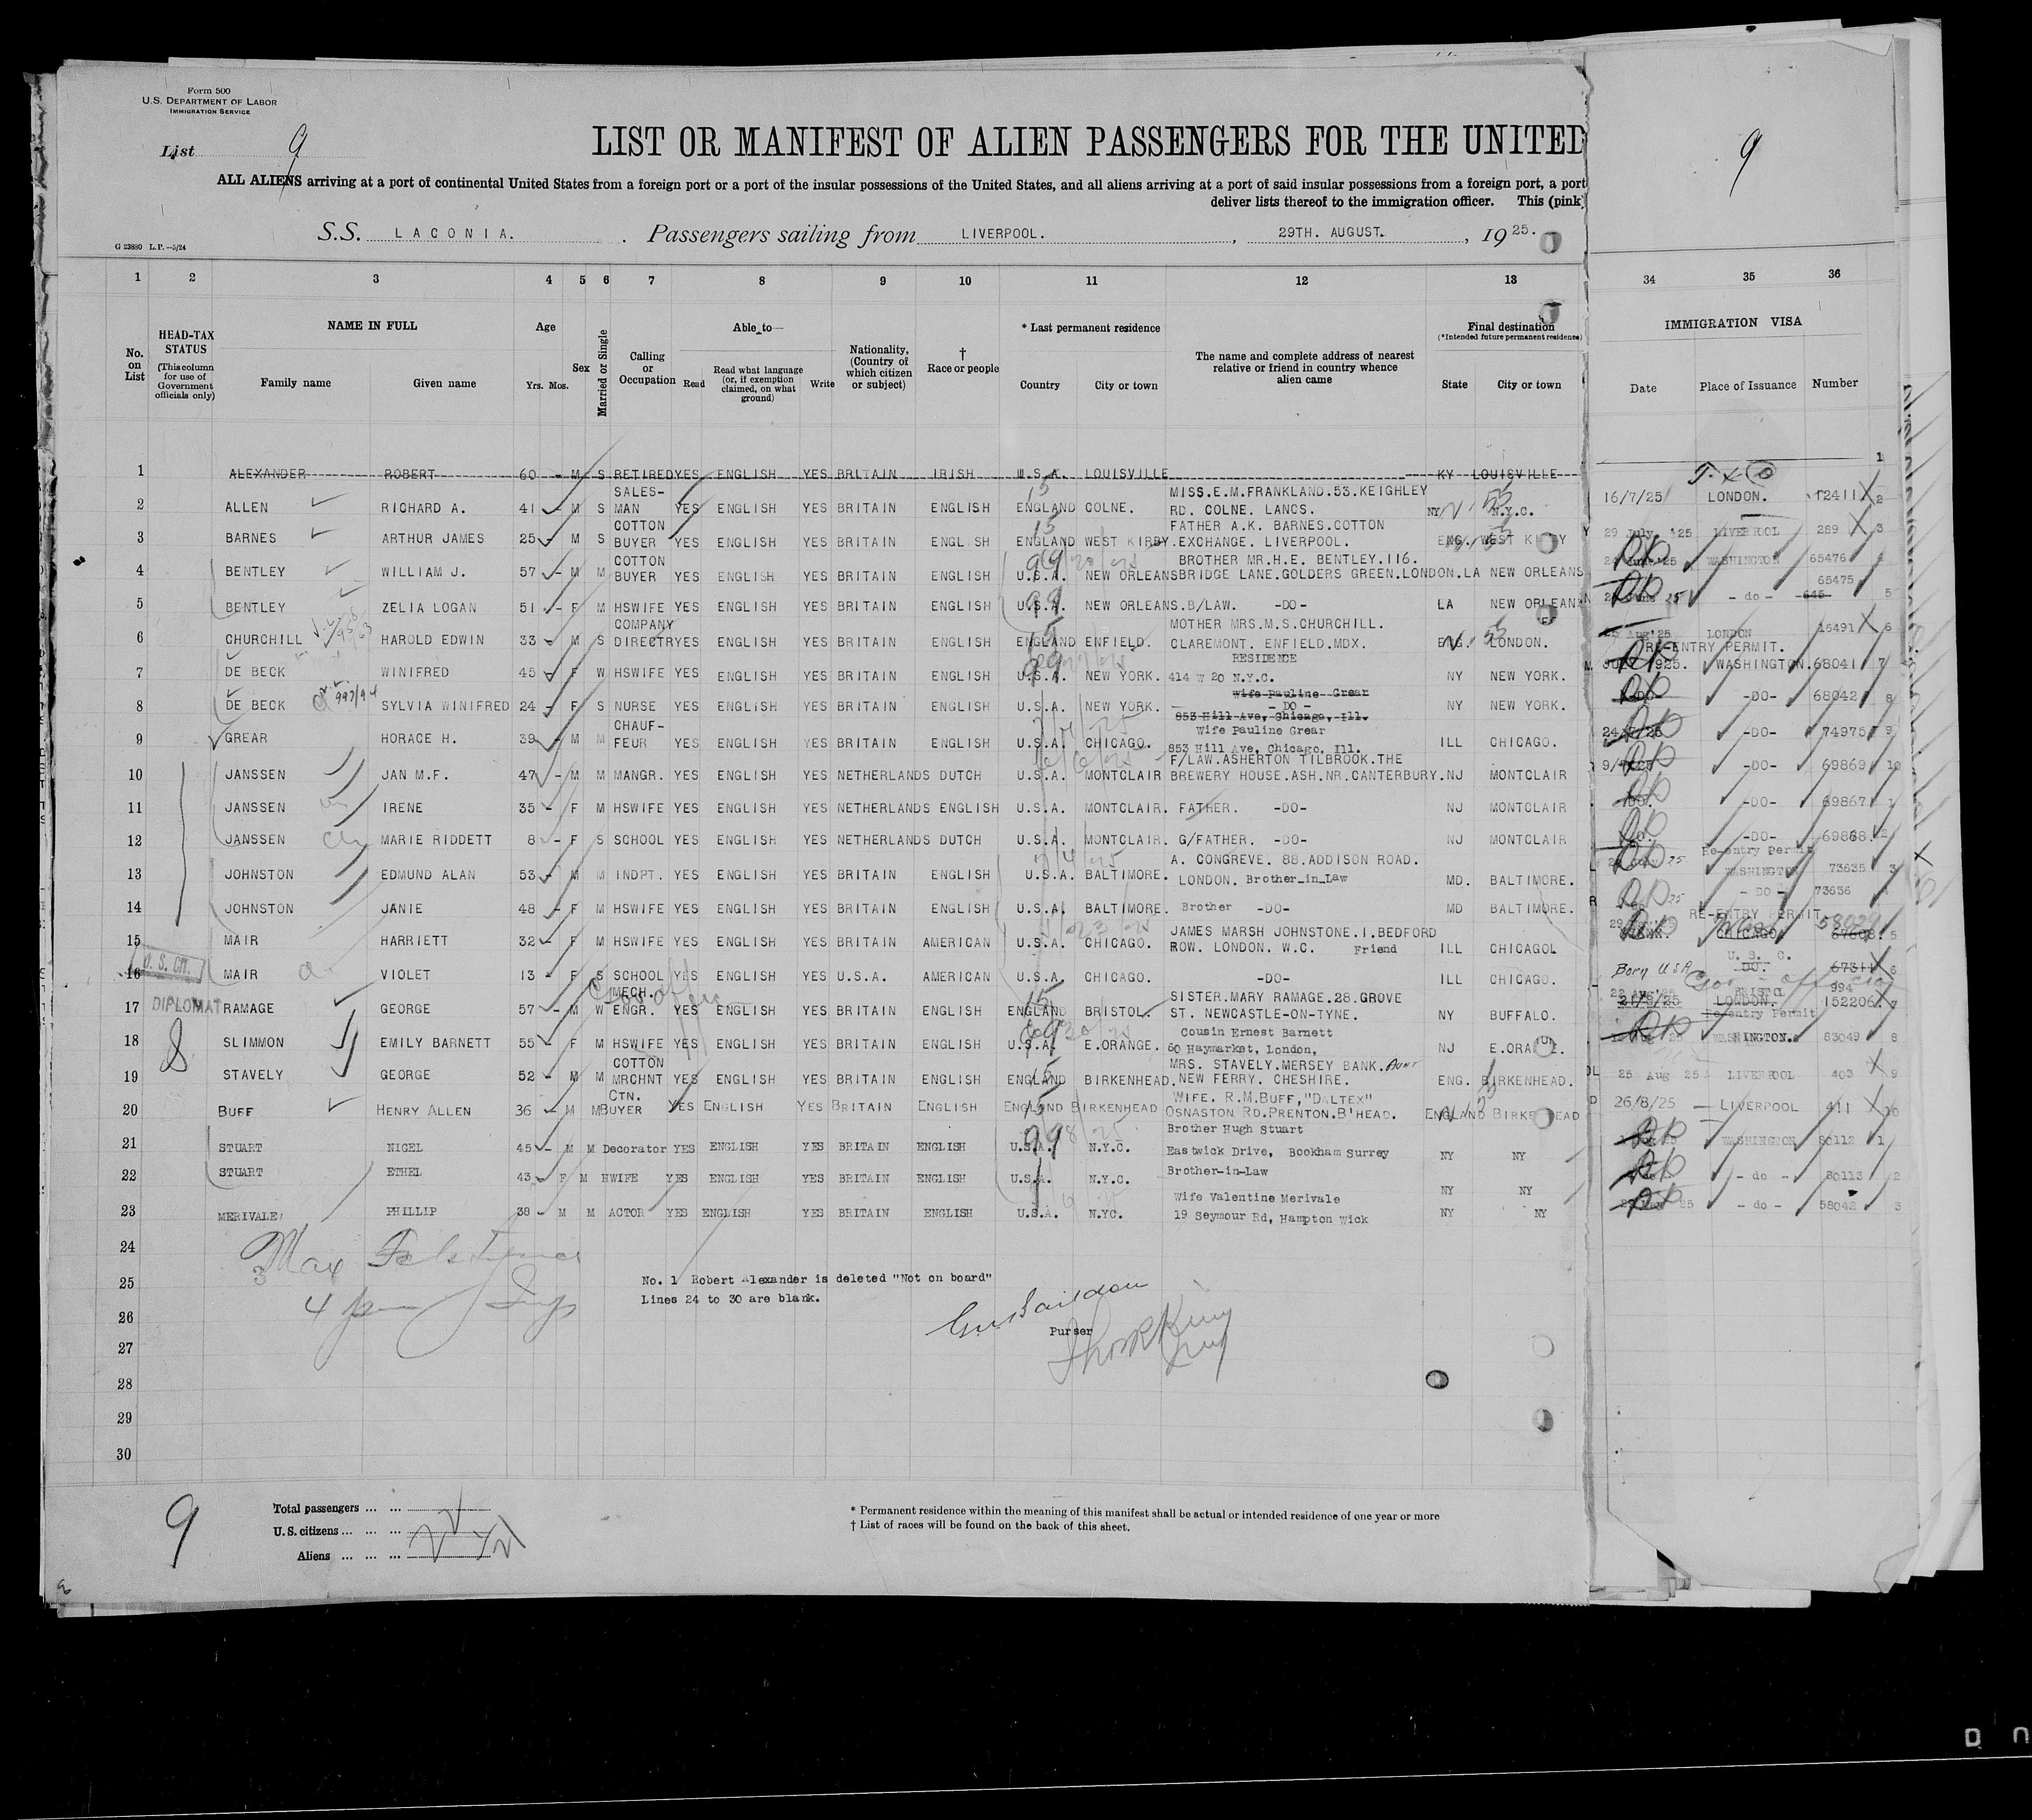 Form 500
U.S. DEPARTMENT OF LABOR
IMMIGRATION SERVICE
List 9
LIST OR MANIFEST OF ALIEN PASSENGERS FOR THE UNITED
9
ALL ALIENS arriving at a port of continental United States from a foreign port or a port of the insular possessions of the United States, and all aliens arriving at a port of said insular possessions from a foreign port, a port
deliver lists thereof to the immigration officer. This (pink)
G 23880 L.P.—5/24
S.S. LACONIA. Passengers sailing from LIVERPOOL. , 29TH. AUGUST. , 1925.
1 2 3 4 5 6 7 8 9 10 11 12 13 34 35 36
No. on List
HEAD-TAX STATUS (This column for use of Government officials only)
NAME IN FULL
Family name Given name
Age
Yrs. Mos.
Sex
Married or Single
Calling or Occupation
Able to—
Read Read what language (or, if exemption claimed, on what ground) Write
Nationality, (Country of which citizen or subject)
† Race or people
* Last permanent residence
Country City or town
The name and complete address of nearest relative or friend in country whence alien came
Final destination
(*Intended future permanent residence)
State City or town
IMMIGRATION VISA
Date Place of Issuance Number
1 ALEXANDER ROBERT 60 - M S RETIRED YES ENGLISH YES BRITAIN IRISH U.S.A. LOUISVILLE KY LOUISVILLE 1
2 ALLEN RICHARD A. 41 - M S SALES-MAN YES ENGLISH YES BRITAIN ENGLISH ENGLAND COLNE. MISS.E.M.FRANKLAND.53.KEIGHLEY RD. COLNE. LANCS. NY N.Y.C. 16/7/25 LONDON. 12411 2
3 BARNES ARTHUR JAMES 25 - M S COTTON BUYER YES ENGLISH YES BRITAIN ENGLISH ENGLAND WEST KIRBY. FATHER A.K. BARNES.COTTON EXCHANGE. LIVERPOOL. ENG. WEST KIRBY 29 July. '25 LIVERPOOL 289 3
4 BENTLEY WILLIAM J. 57 - M M COTTON BUYER YES ENGLISH YES BRITAIN ENGLISH U.S.A. NEW ORLEANS BROTHER MR.H.E. BENTLEY.116. BRIDGE LANE.GOLDERS GREEN.LONDON. LA NEW ORLEANS WASHINGTON 65476 4
5 BENTLEY ZELIA LOGAN 51 - F M HSWIFE YES ENGLISH YES BRITAIN ENGLISH U.S.A. NEW ORLEANS. B/LAW. -DO- LA NEW ORLEANS - do - 65475 5
6 CHURCHILL HAROLD EDWIN 33 - M S COMPANY DIRECTR YES ENGLISH YES BRITAIN ENGLISH ENGLAND ENFIELD. MOTHER MRS.M.S.CHURCHILL. CLAREMONT. ENFIELD.MDX. ENG. LONDON. 25 Aug '25 LONDON 16491 6
7 DE BECK WINIFRED 45 - F W HSWIFE YES ENGLISH YES BRITAIN ENGLISH U.S.A. NEW YORK. RESIDENCE 414 W 20 N.Y.C. NY NEW YORK. RE-ENTRY PERMIT. JULY 1925. WASHINGTON. 68041 7
8 DE BECK SYLVIA WINIFRED 24 - F S NURSE YES ENGLISH YES BRITAIN ENGLISH U.S.A. NEW YORK. Wife Pauline Grear - DO - 853 Hill Ave, Chicago, Ill. NY NEW YORK. -DO- -DO- 68042 8
9 GREAR HORACE H. 39 - M M CHAUF-FEUR YES ENGLISH YES BRITAIN ENGLISH U.S.A. CHICAGO. Wife Pauline Grear 853 Hill Ave, Chicago, Ill. ILL CHICAGO. -DO- 74975 9
10 JANSSEN JAN M.F. 47 - M M MANGR. YES ENGLISH YES NETHERLANDS DUTCH U.S.A. MONTCLAIR F/LAW.ASHERTON TILBROOK.THE BREWERY HOUSE.ASH.NR.CANTERBURY. NJ MONTCLAIR -DO- 69869 10
11 JANSSEN IRENE 35 - F M HSWIFE YES ENGLISH YES NETHERLANDS ENGLISH U.S.A. MONTCLAIR. FATHER. -DO- NJ MONTCLAIR DO. -DO- 69867 1
12 JANSSEN MARIE RIDDETT 8 - F S SCHOOL YES ENGLISH YES NETHERLANDS DUTCH U.S.A. MONTCLAIR. G/FATHER. -DO- NJ MONTCLAIR -DO- 69868 2
13 JOHNSTON EDMUND ALAN 53 - M M INDPT. YES ENGLISH YES BRITAIN ENGLISH U.S.A. BALTIMORE. A. CONGREVE. 88.ADDISON ROAD. LONDON. Brother_in_Law MD. BALTIMORE. Re-entry Permit WASHINGTON 73635 3
14 JOHNSTON JANIE 48 - F M HSWIFE YES ENGLISH YES BRITAIN ENGLISH U.S.A. BALTIMORE. Brother -DO- MD BALTIMORE. - DO - 73636 4
15 MAIR HARRIETT 32 - F M HSWIFE YES ENGLISH YES BRITAIN AMERICAN U.S.A. CHICAGO. JAMES MARSH JOHNSTONE.I.BEDFORD ROW. LONDON. W.C. Friend ILL CHICAGO RE-ENTRY PERMIT CHICAGO 58029 5
U.S. CIT.
16 MAIR VIOLET 13 - F S SCHOOL YES ENGLISH YES U.S.A. AMERICAN U.S.A. CHICAGO. -DO- ILL CHICAGO. Born USA U. S. C. DO. 67311 6
17 DIPLOMAT RAMAGE GEORGE 57 - M W MECH. ENGR. YES ENGLISH YES BRITAIN ENGLISH ENGLAND BRISTOL. SISTER.MARY RAMAGE.28.GROVE ST. NEWCASTLE-ON-TYNE. NY BUFFALO. 22 Aug'25 BRISTOL 994 21/8/25 LONDON. 152206 7
18 SLIMMON EMILY BARNETT 55 - F M HSWIFE YES ENGLISH YES BRITAIN ENGLISH U.S.A. E.ORANGE. Cousin Ernest Barnett 60 Haymarket, London, NJ E.ORANGE. Re-entry Permit WASHINGTON. 83049 8
19 STAVELY GEORGE 52 - M M COTTON MRCHNT YES ENGLISH YES BRITAIN ENGLISH ENGLAND BIRKENHEAD. MRS. STAVELY.MERSEY BANK. Aunt NEW FERRY. CHESHIRE. ENG. BIRKENHEAD. 25 Aug 25 LIVERPOOL 403 9
20 BUFF HENRY ALLEN 36 - M M CTN. BUYER YES ENGLISH YES BRITAIN ENGLISH ENGLAND BIRKENHEAD WIFE. R.M.BUFF,"DALTEX" OSNASTON RD.PRENTON.B'HEAD. ENGLAND BIRKENHEAD 26/8/25 LIVERPOOL 411 10
21 STUART NIGEL 45 - M M Decorator YES ENGLISH YES BRITAIN ENGLISH U.S.A. N.Y.C. Brother Hugh Stuart Eastwick Drive, Bookham Surrey NY NY WASHINGTON 80112 1
22 STUART ETHEL 43 - F M HWIFE YES ENGLISH YES BRITAIN ENGLISH U.S.A. N.Y.C. Brother-in-Law NY NY - do - 80113 2
23 MERIVALE PHILLIP 38 - M M ACTOR YES ENGLISH YES BRITAIN ENGLISH U.S.A. N.YC. Wife Valentine Merivale 19 Seymour Rd, Hampton Wick NY NY - do - 58042 3
24
25 No. 1 Robert Alexander is deleted "Not on board"
Lines 24 to 30 are blank.
26
Purser
27
28
29
30
9
Total passengers ... ...
U.S. citizens ... ... ...
Aliens ... ... ...
* Permanent residence within the meaning of this manifest shall be actual or intended residence of one year or more
† List of races will be found on the back of this sheet.